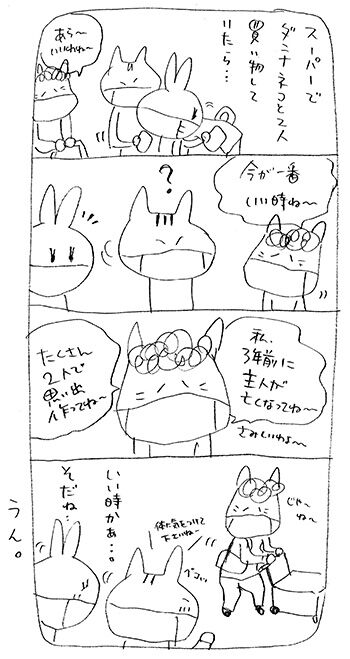 スーパーで
ダンナネコと2人
買い物して
いたら…
あら〜
いいわね〜
今が一番
いい時ね〜
?
私、
3年前に
主人が
亡くなってね〜
さみしいわよ〜
たくさん
2人で
思い出
作ってね〜
じゃ〜
ね〜
体に気をつけて
下さいね〜
ペコッ
いい時かぁ…。
そだね…
うん。